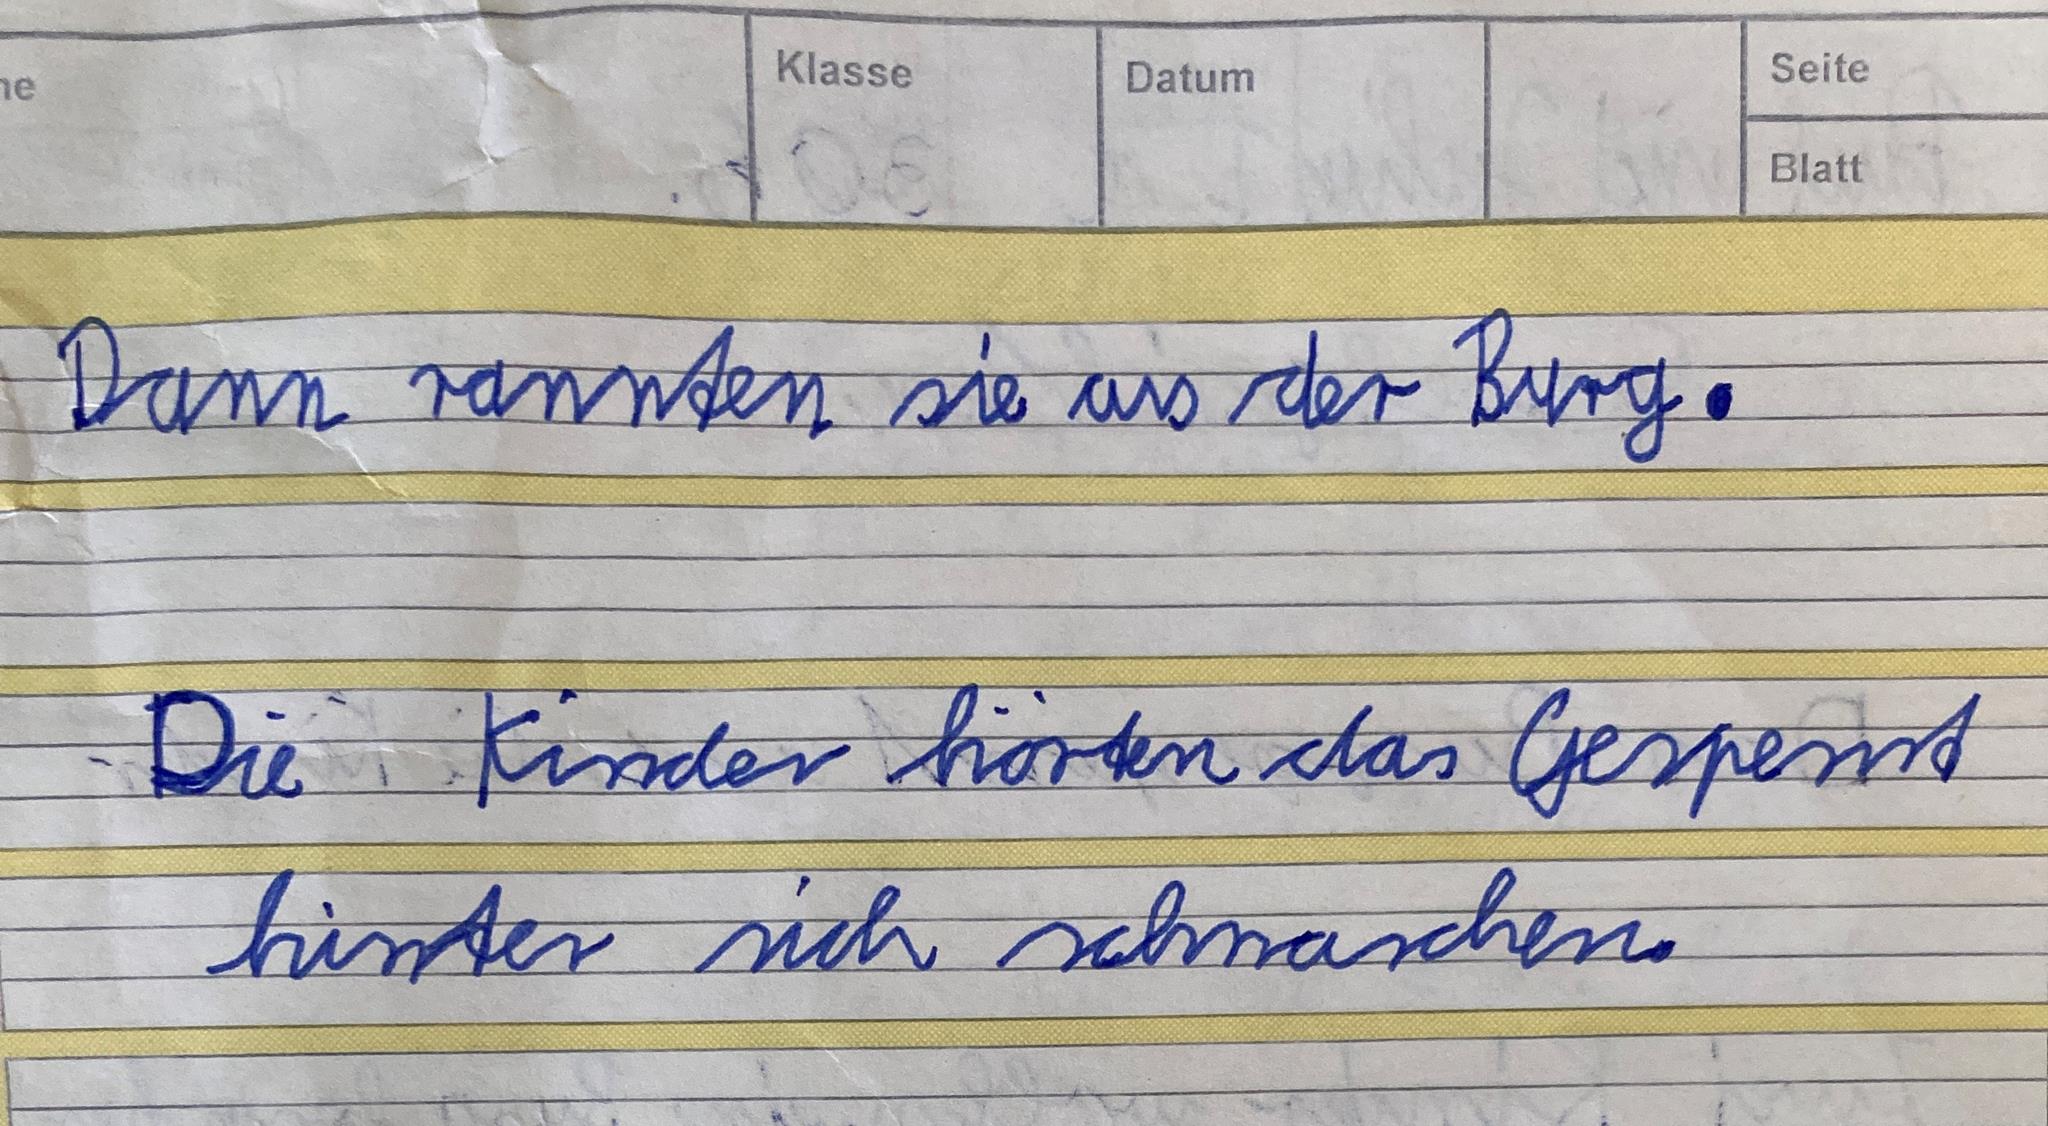 ne
Klasse
Datum
Seite
Blatt
Dann rannten sie aus der Burg.
Die Kinder hörten das Gespenst
hinter sich schnaschen.